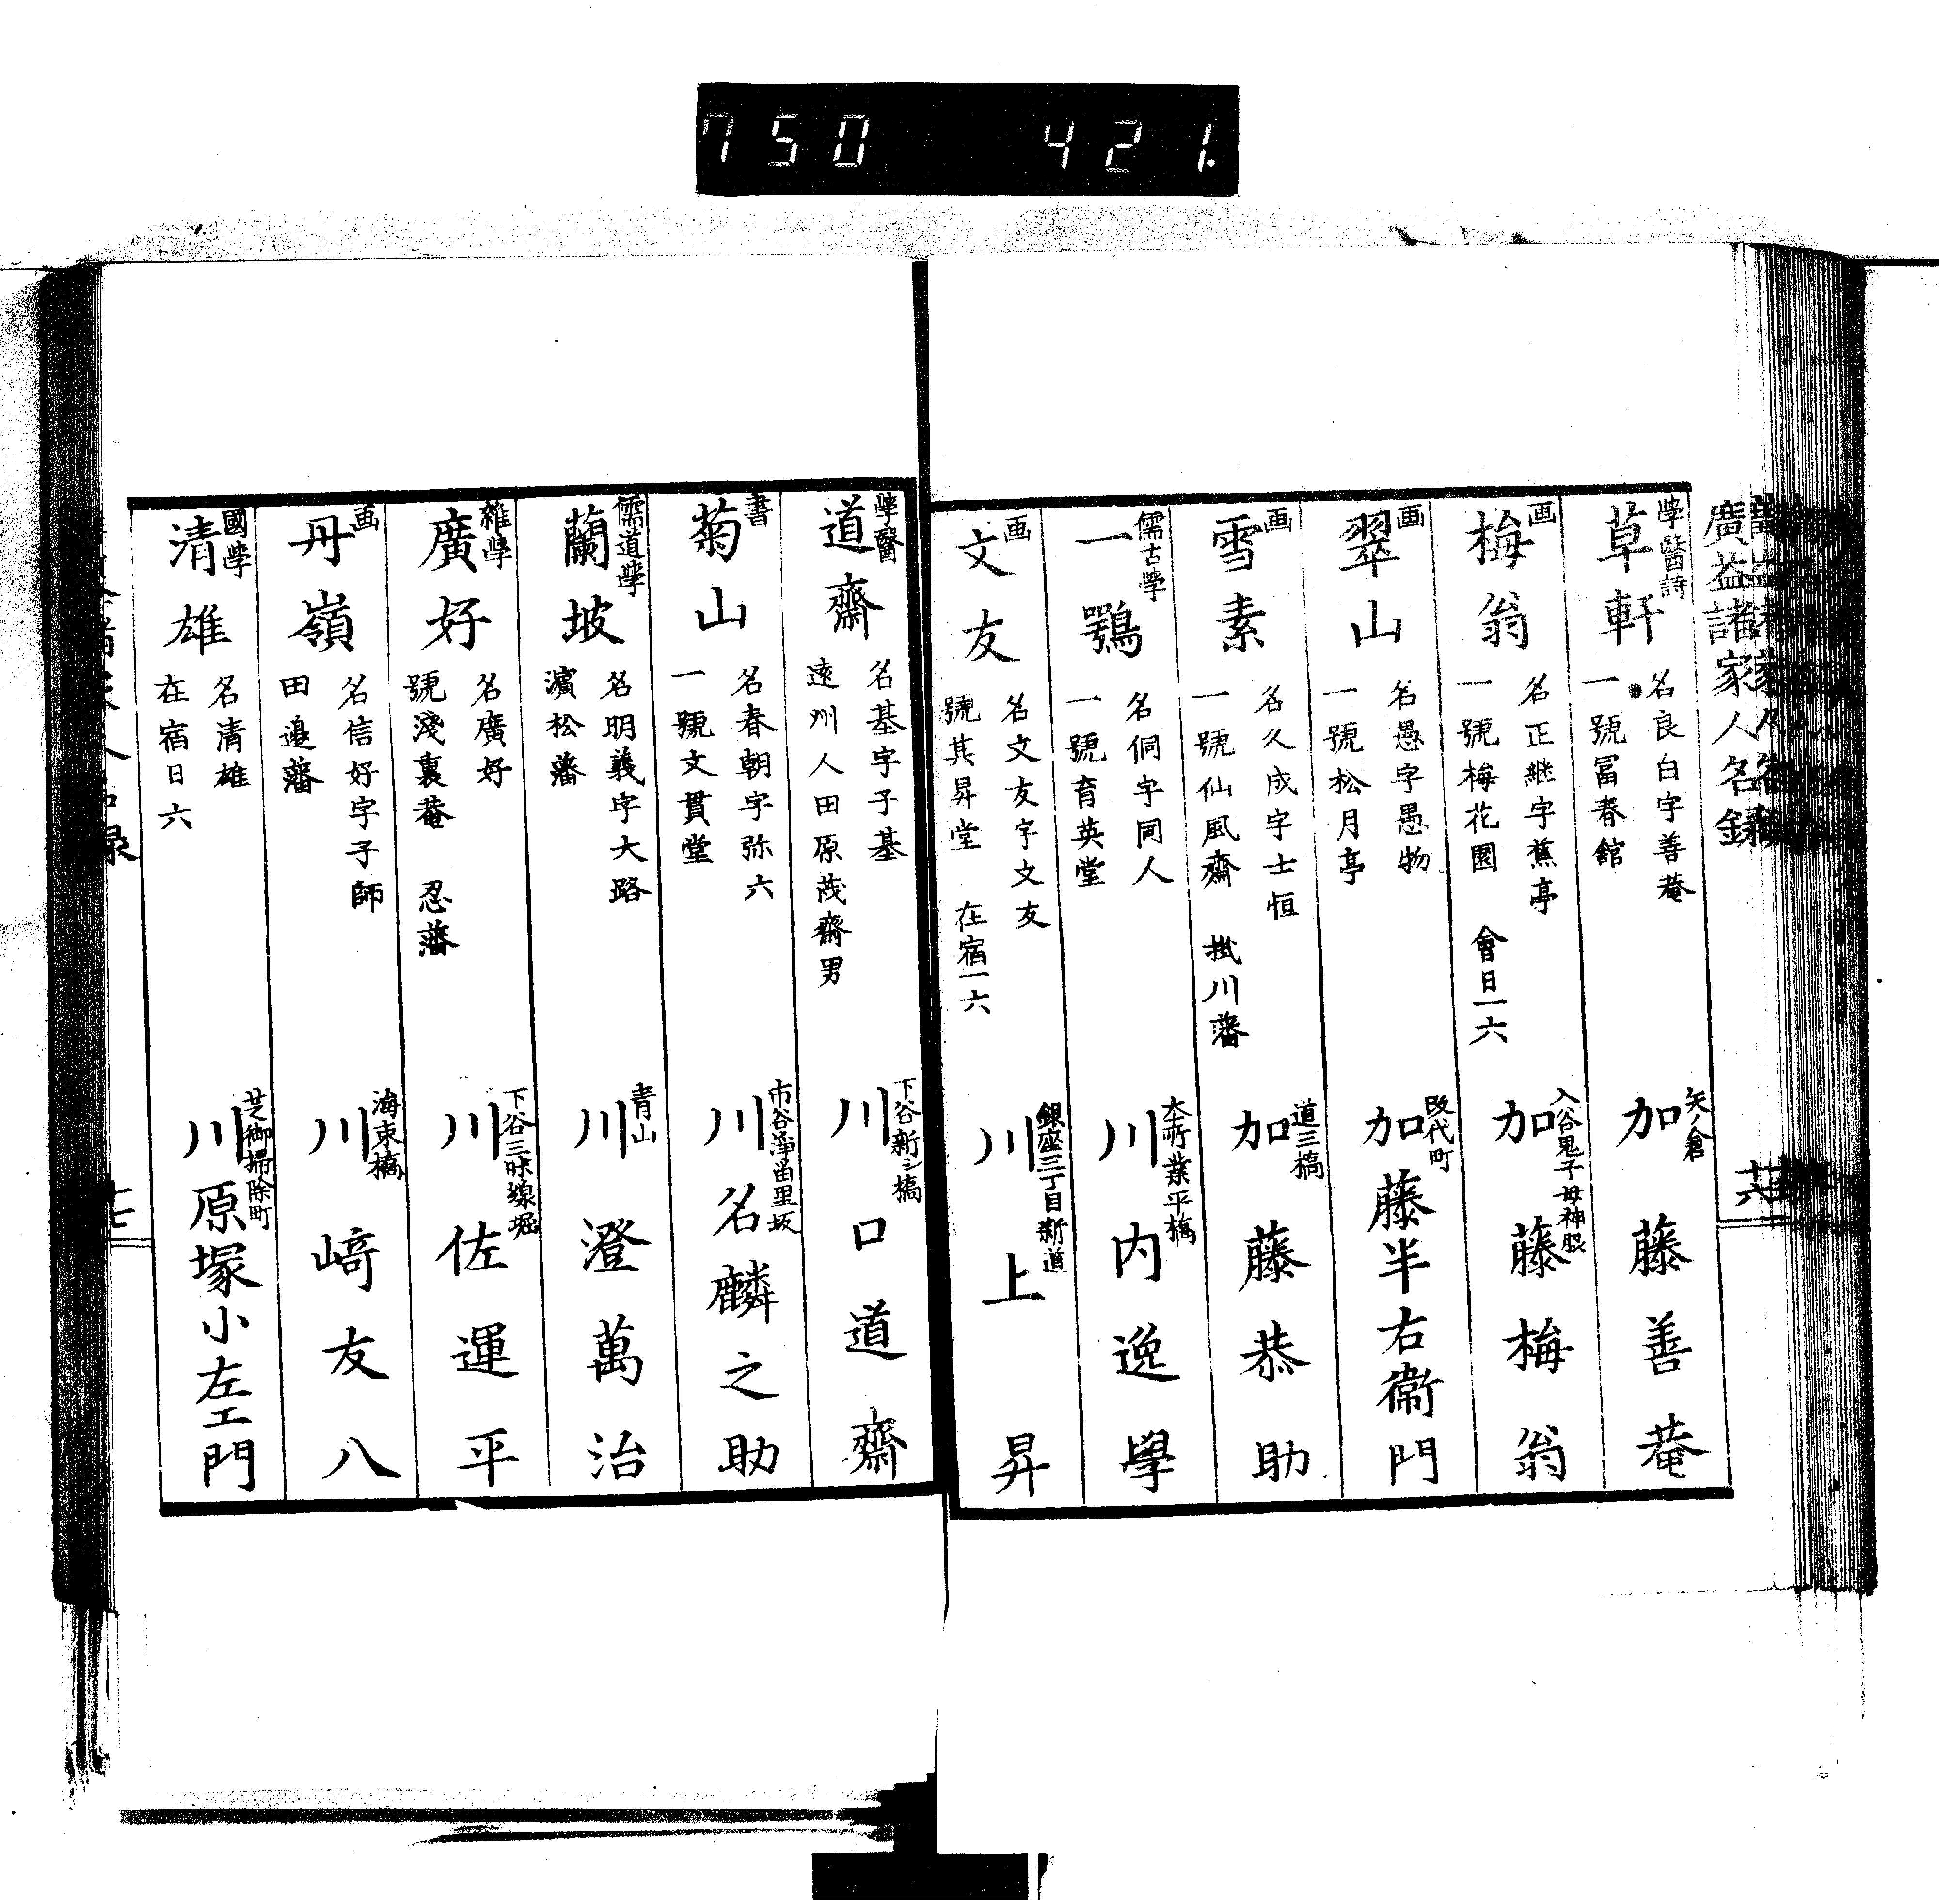 750 421.
廣益諸家人名録
廿六
學醫詩
草軒
名良白字善菴
一號冨春館
矢ノ倉
加藤善菴
画
梅翁
名正継字蕉亭
一號梅花園 會日一六
入谷鬼子母神脇
加藤梅翁
画
翠山
名愚字愚物
一號松月亭
改代町
加藤半右衞門
画
雪素
名久成字士恒
一號仙風齋 掛川藩
道三橋
加藤恭助
儒古學
一鶚
名侗字同人
一號育英堂
本所業平橋
川内逸學
画
文友
名文友字文友
號其昇堂 在宿一六
銀座三丁目新道
川上昇
學醫
道齋
名基字子基
遠州人田原茂齋男
下谷新シ橋
川口道齋
書
菊山
名春朝字弥六
一號文貫堂
市谷淨瑠里坂
川名麟之助
儒道學
蘭坡
名明義字大路
濱松藩
青山
川澄萬治
雜學
廣好
名廣好
號淺裏菴 忍藩
下谷三味線堀
川佐運平
画
丹嶺
名信好字子師
田邉藩
海東橋
川﨑友八
國學
清雄
名清雄
在宿日六
芝御掃除町
川原塚小左エ門